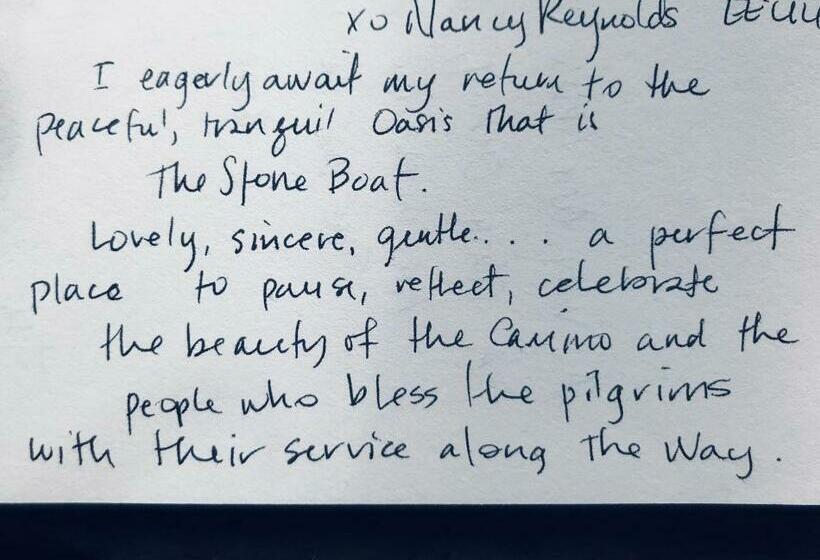 xo Nancy Reynolds
I eagerly await my return to the
peaceful, tranquil Oasis that is
The Stone Boat.
Lovely, sincere, gentle.... a perfect
place to pause, reflect, celebrate
the beauty of the Camino and the
people who bless the pilgrims
with their service along the Way.